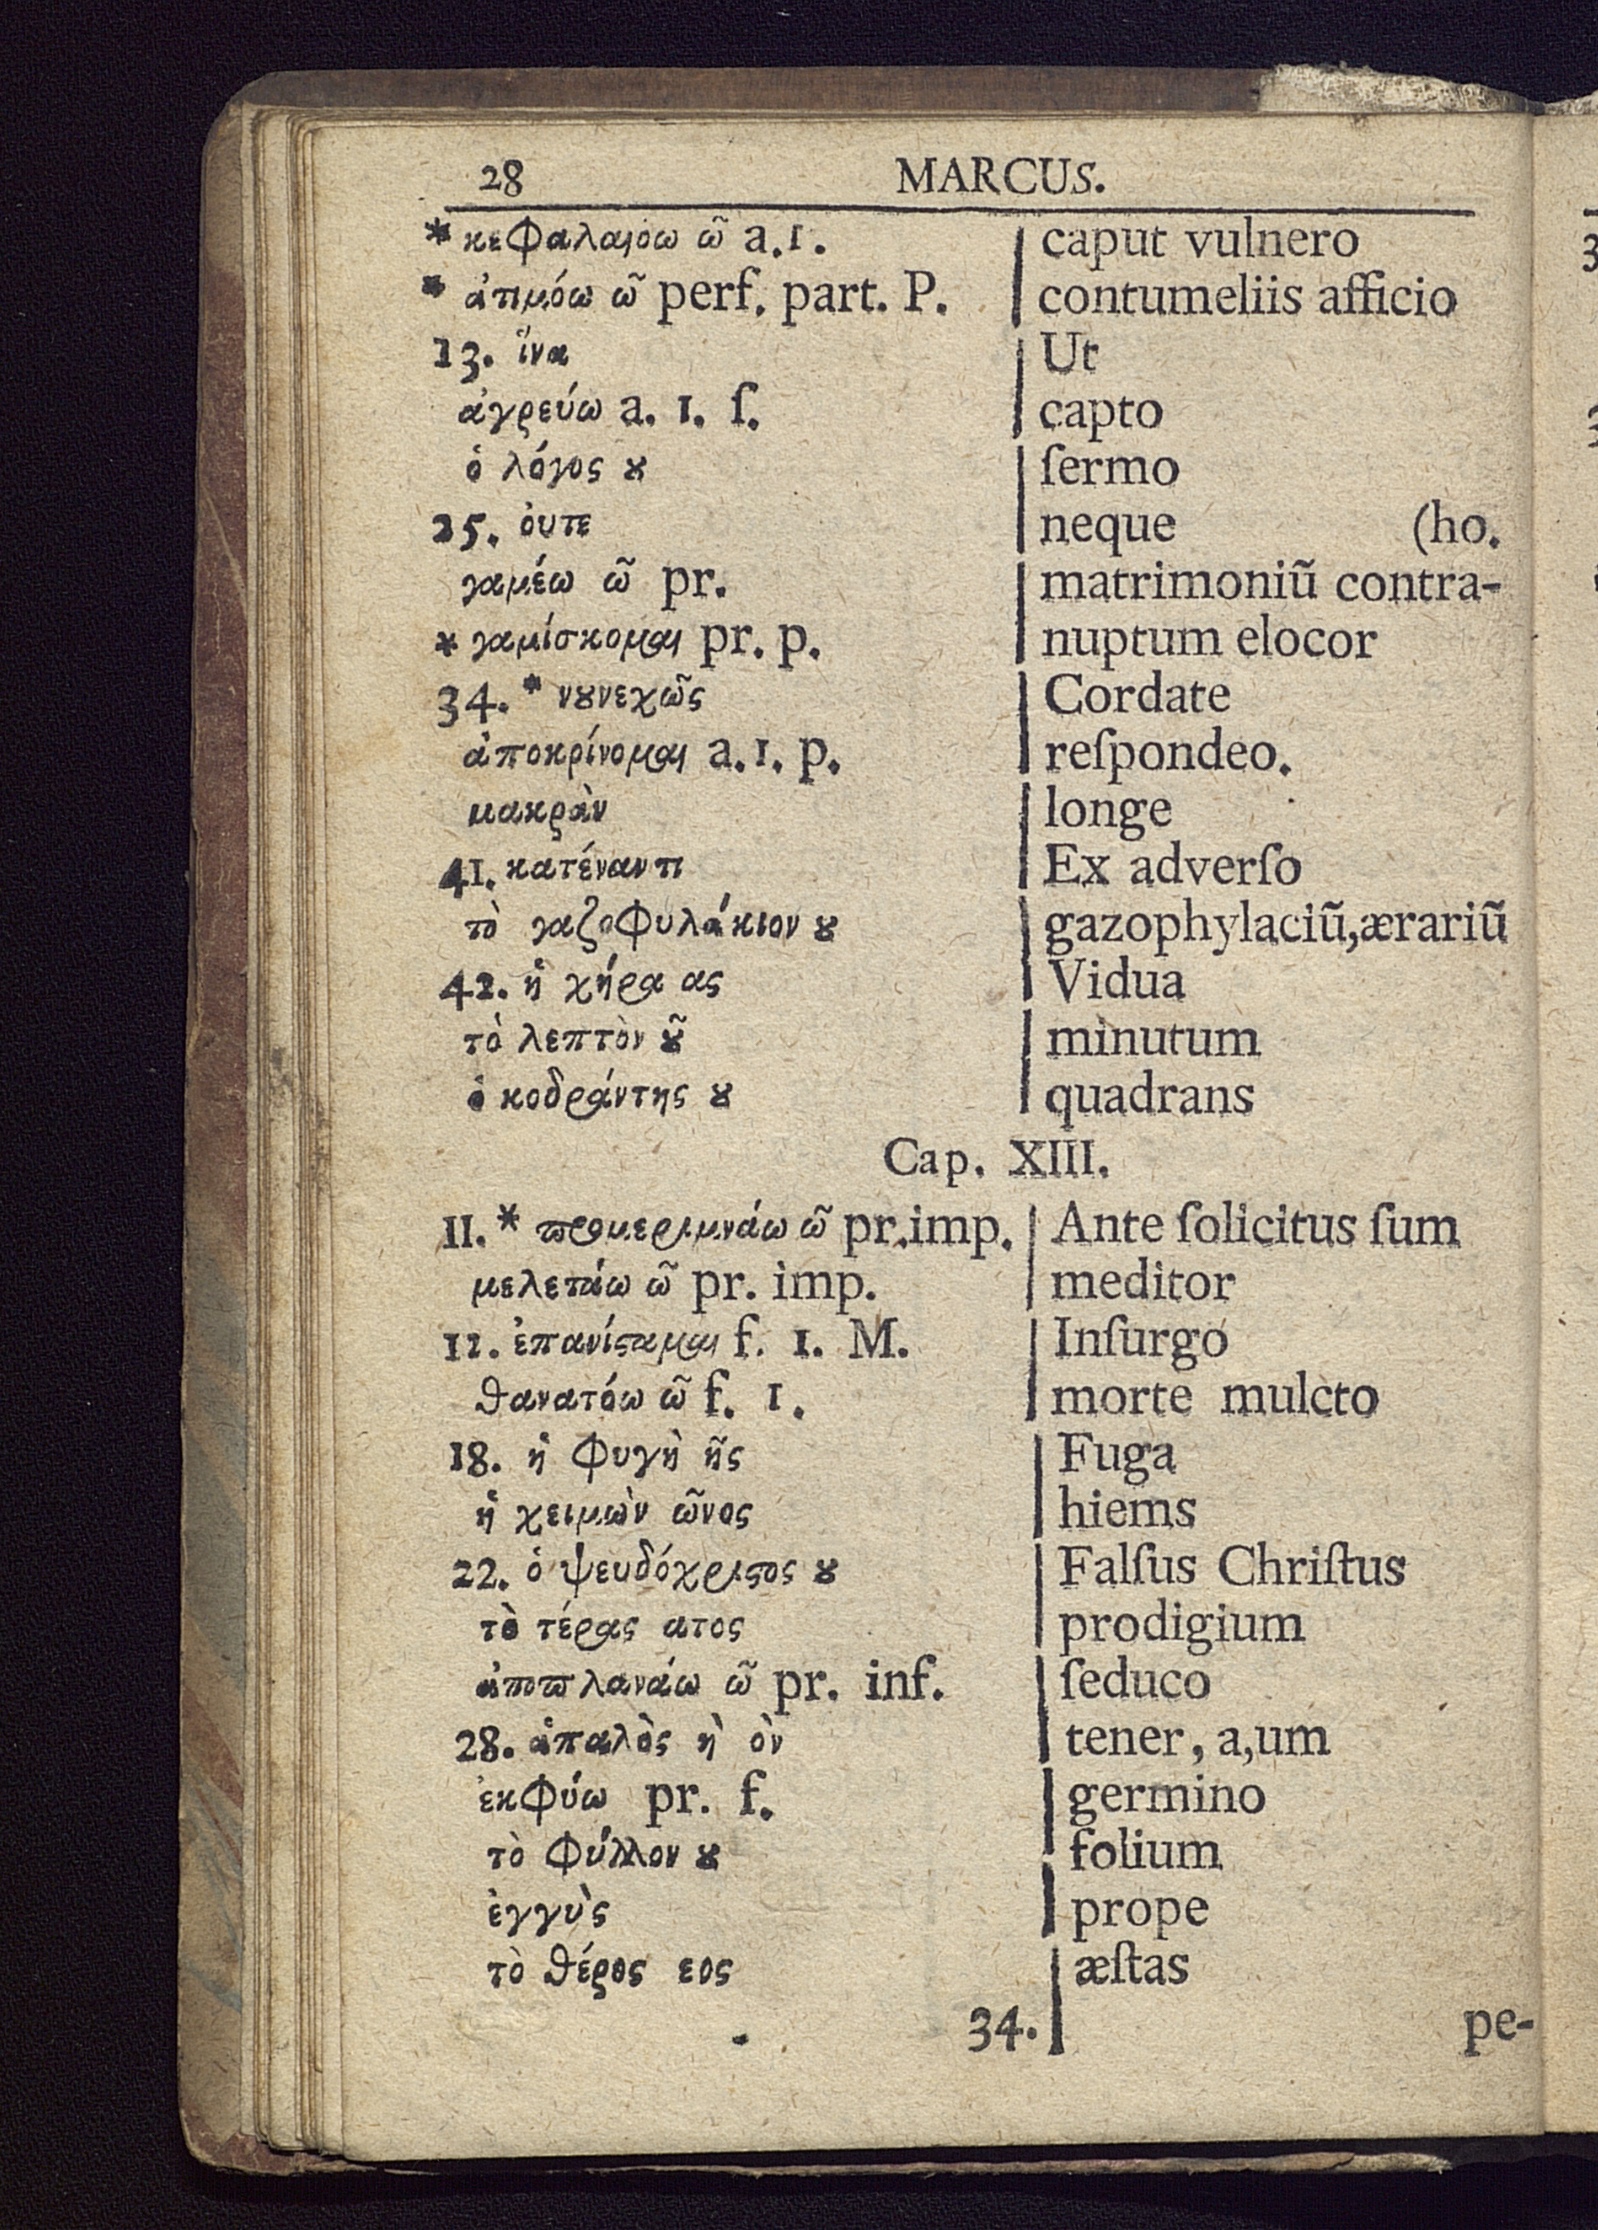 28 MARCUS.
* κεφαλαιόω ῶ a.1. caput vulnero
* ἀτιμόω ῶ perf. part. P. contumeliis afficio
13. ἵνα Ut
ἀγρεύω a. 1. ſ. capto
ὁ λόγος ȣ ſermo
25. ὀυτε neque (ho.
γαμέω ῶ pr. matrimoniũ contra-
* γαμίσκομαι pr. p. nuptum elocor
34. * νȣνεχῶς Cordate
ἀποκρίνομαι a.1. p. reſpondeo.
μακρὰν longe
41. κατέναντι Ex adverſo
τὸ γαζοφυλάκιον ȣ gazophylaciũ,ærariũ
42. ἡ χήρα ας Vidua
τὸ λεπτὸν ȣ͂ minutum
ὁ κοδράντης ȣ quadrans
Cap. XIII.
11. * προμεριμνάω ῶ pr.imp. Ante ſolicitus ſum
μελετάω ῶ pr. imp. meditor
12. ἐπανίϛαμαι f. 1. M. Inſurgo
θανατόω ῶ f. 1. morte mulcto
18. ἡ φυγὴ ῆς Fuga
ἡ χειμὼν ῶνος hiems
22. ὁ ψευδόχριϛος ȣ Falſus Chriſtus
τὸ τέρας ατος prodigium
ἀποπλανάω ῶ pr. inf. ſeduco
28. ἁπαλὸς ὴ ὸν tener, a,um
ἐκφύω pr. f. germino
τὸ φύλλον ȣ folium
ἐγγὺς prope
τὸ θέρος εος æſtas
34. pe-